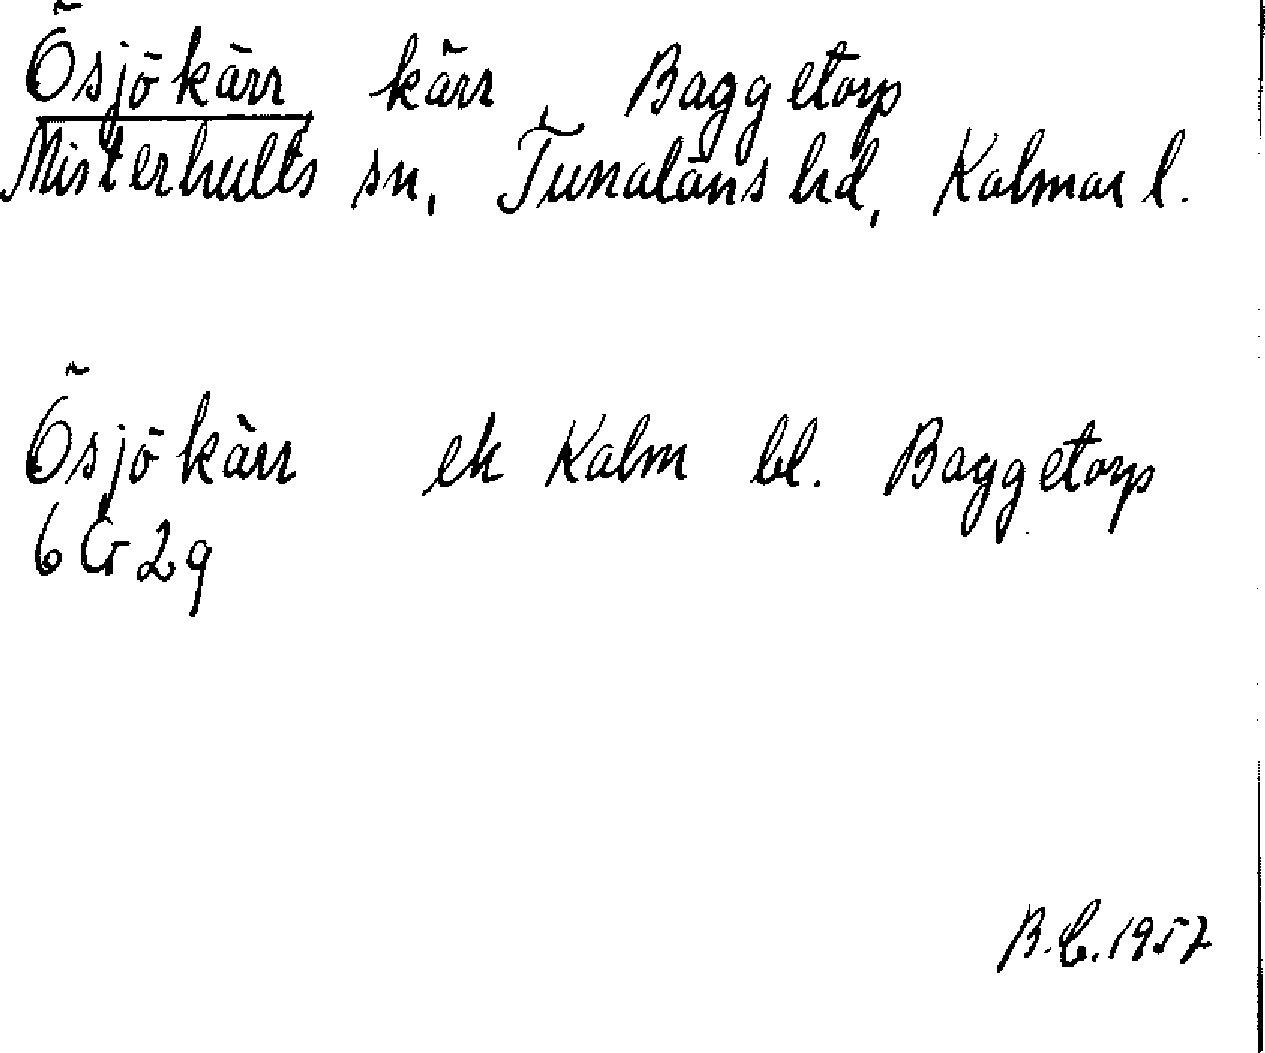 Ösjökärr kärr, Baggetorp
Misterhults sn, Tunaläns hd, Kalmar l.
Ösjökärr ek Kalm bl. Baggetorp
6 G 2 g
B.C. 1957